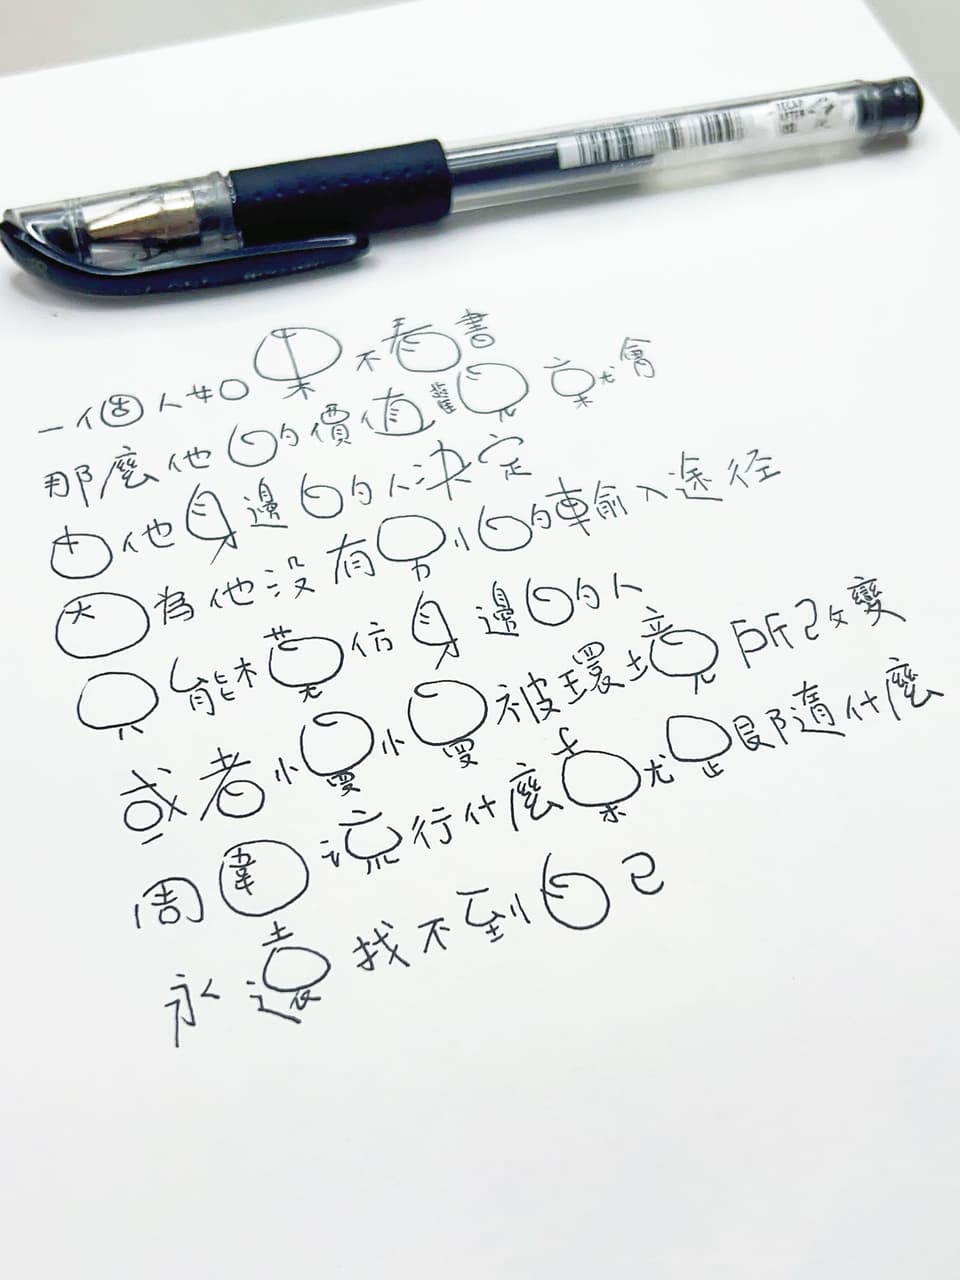 RECAP
AFTER
USE
一個人如果不看書
那麼他的價值觀就會
由他身邊的人決定
因為他沒有別的輸入途径
只能模仿身邊的人
或者慢慢被環境所改變
周圍流行什麼就是跟隨什麼
永遠找不到自己